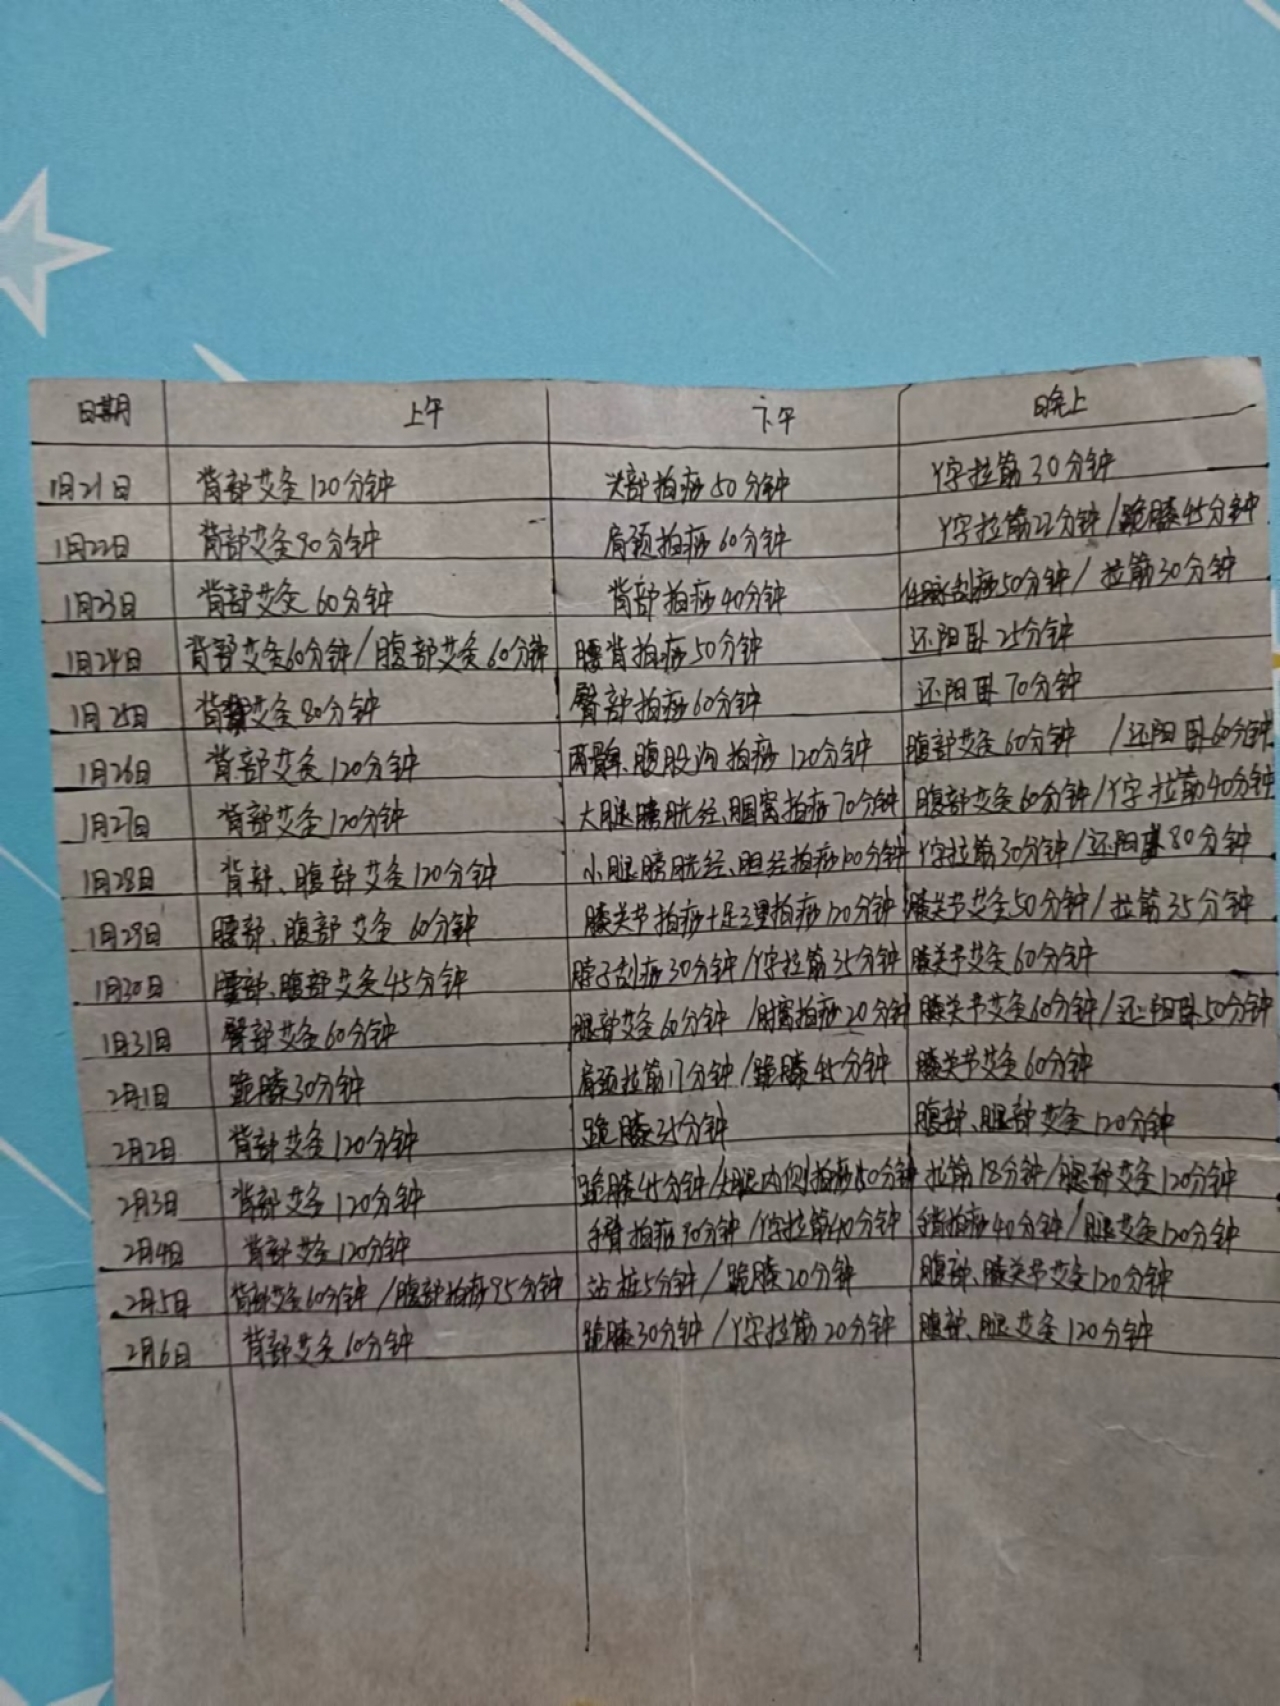 日期 上午 下午 晚上
1月21日 背部艾灸120分钟 头部拍痧50分钟 Y字拉筋30分钟
1月22日 背部艾灸90分钟 肩颈拍痧60分钟 Y字拉筋22分钟/跪膝45分钟
1月23日 背部艾灸60分钟 背部拍痧40分钟 任脉刮痧50分钟/拉筋30分钟
1月24日 背部艾灸60分钟/腹部艾灸60分钟 腰背拍痧50分钟 还阳卧25分钟
1月25日 背部艾灸80分钟 臀部拍痧60分钟 还阳卧70分钟
1月26日 背部艾灸120分钟 两髋、腹股沟拍痧120分钟 腹部艾灸60分钟/还阳卧60分钟
1月27日 背部艾灸120分钟 大腿膀胱经、腘窝拍痧70分钟 腹部艾灸60分钟/Y字拉筋40分钟
1月28日 背部、腹部艾灸120分钟 小腿膀胱经、胆经拍痧100分钟 Y字拉筋30分钟/还阳卧80分钟
1月29日 腰部、腹部艾灸60分钟 膝关节拍痧+足三里拍痧120分钟 膝关节艾灸50分钟/拉筋35分钟
1月30日 腰部、腹部艾灸45分钟 脖子刮痧30分钟/Y字拉筋35分钟 膝关节艾灸60分钟
1月31日 臀部艾灸60分钟 腿部艾灸60分钟/肘窝拍痧20分钟 膝关节艾灸60分钟/还阳卧50分钟
2月1日 跪膝30分钟 肩颈拉筋17分钟/跪膝45分钟 膝关节艾灸60分钟
2月2日 背部艾灸120分钟 跪膝25分钟 腹部、腿部艾灸120分钟
2月3日 背部艾灸120分钟 跪膝45分钟/大腿内侧拍痧80分钟 拉筋18分钟/腿部艾灸120分钟
2月4日 背部艾灸120分钟 手臂拍痧90分钟/Y字拉筋40分钟 手背拍痧40分钟/腿艾灸120分钟
2月5日 背部艾灸60分钟/腹部拍痧95分钟 站桩5分钟/跪膝20分钟 腹部、膝关节艾灸120分钟
2月6日 背部艾灸60分钟 跪膝30分钟/Y字拉筋20分钟 腹部、腿艾灸120分钟